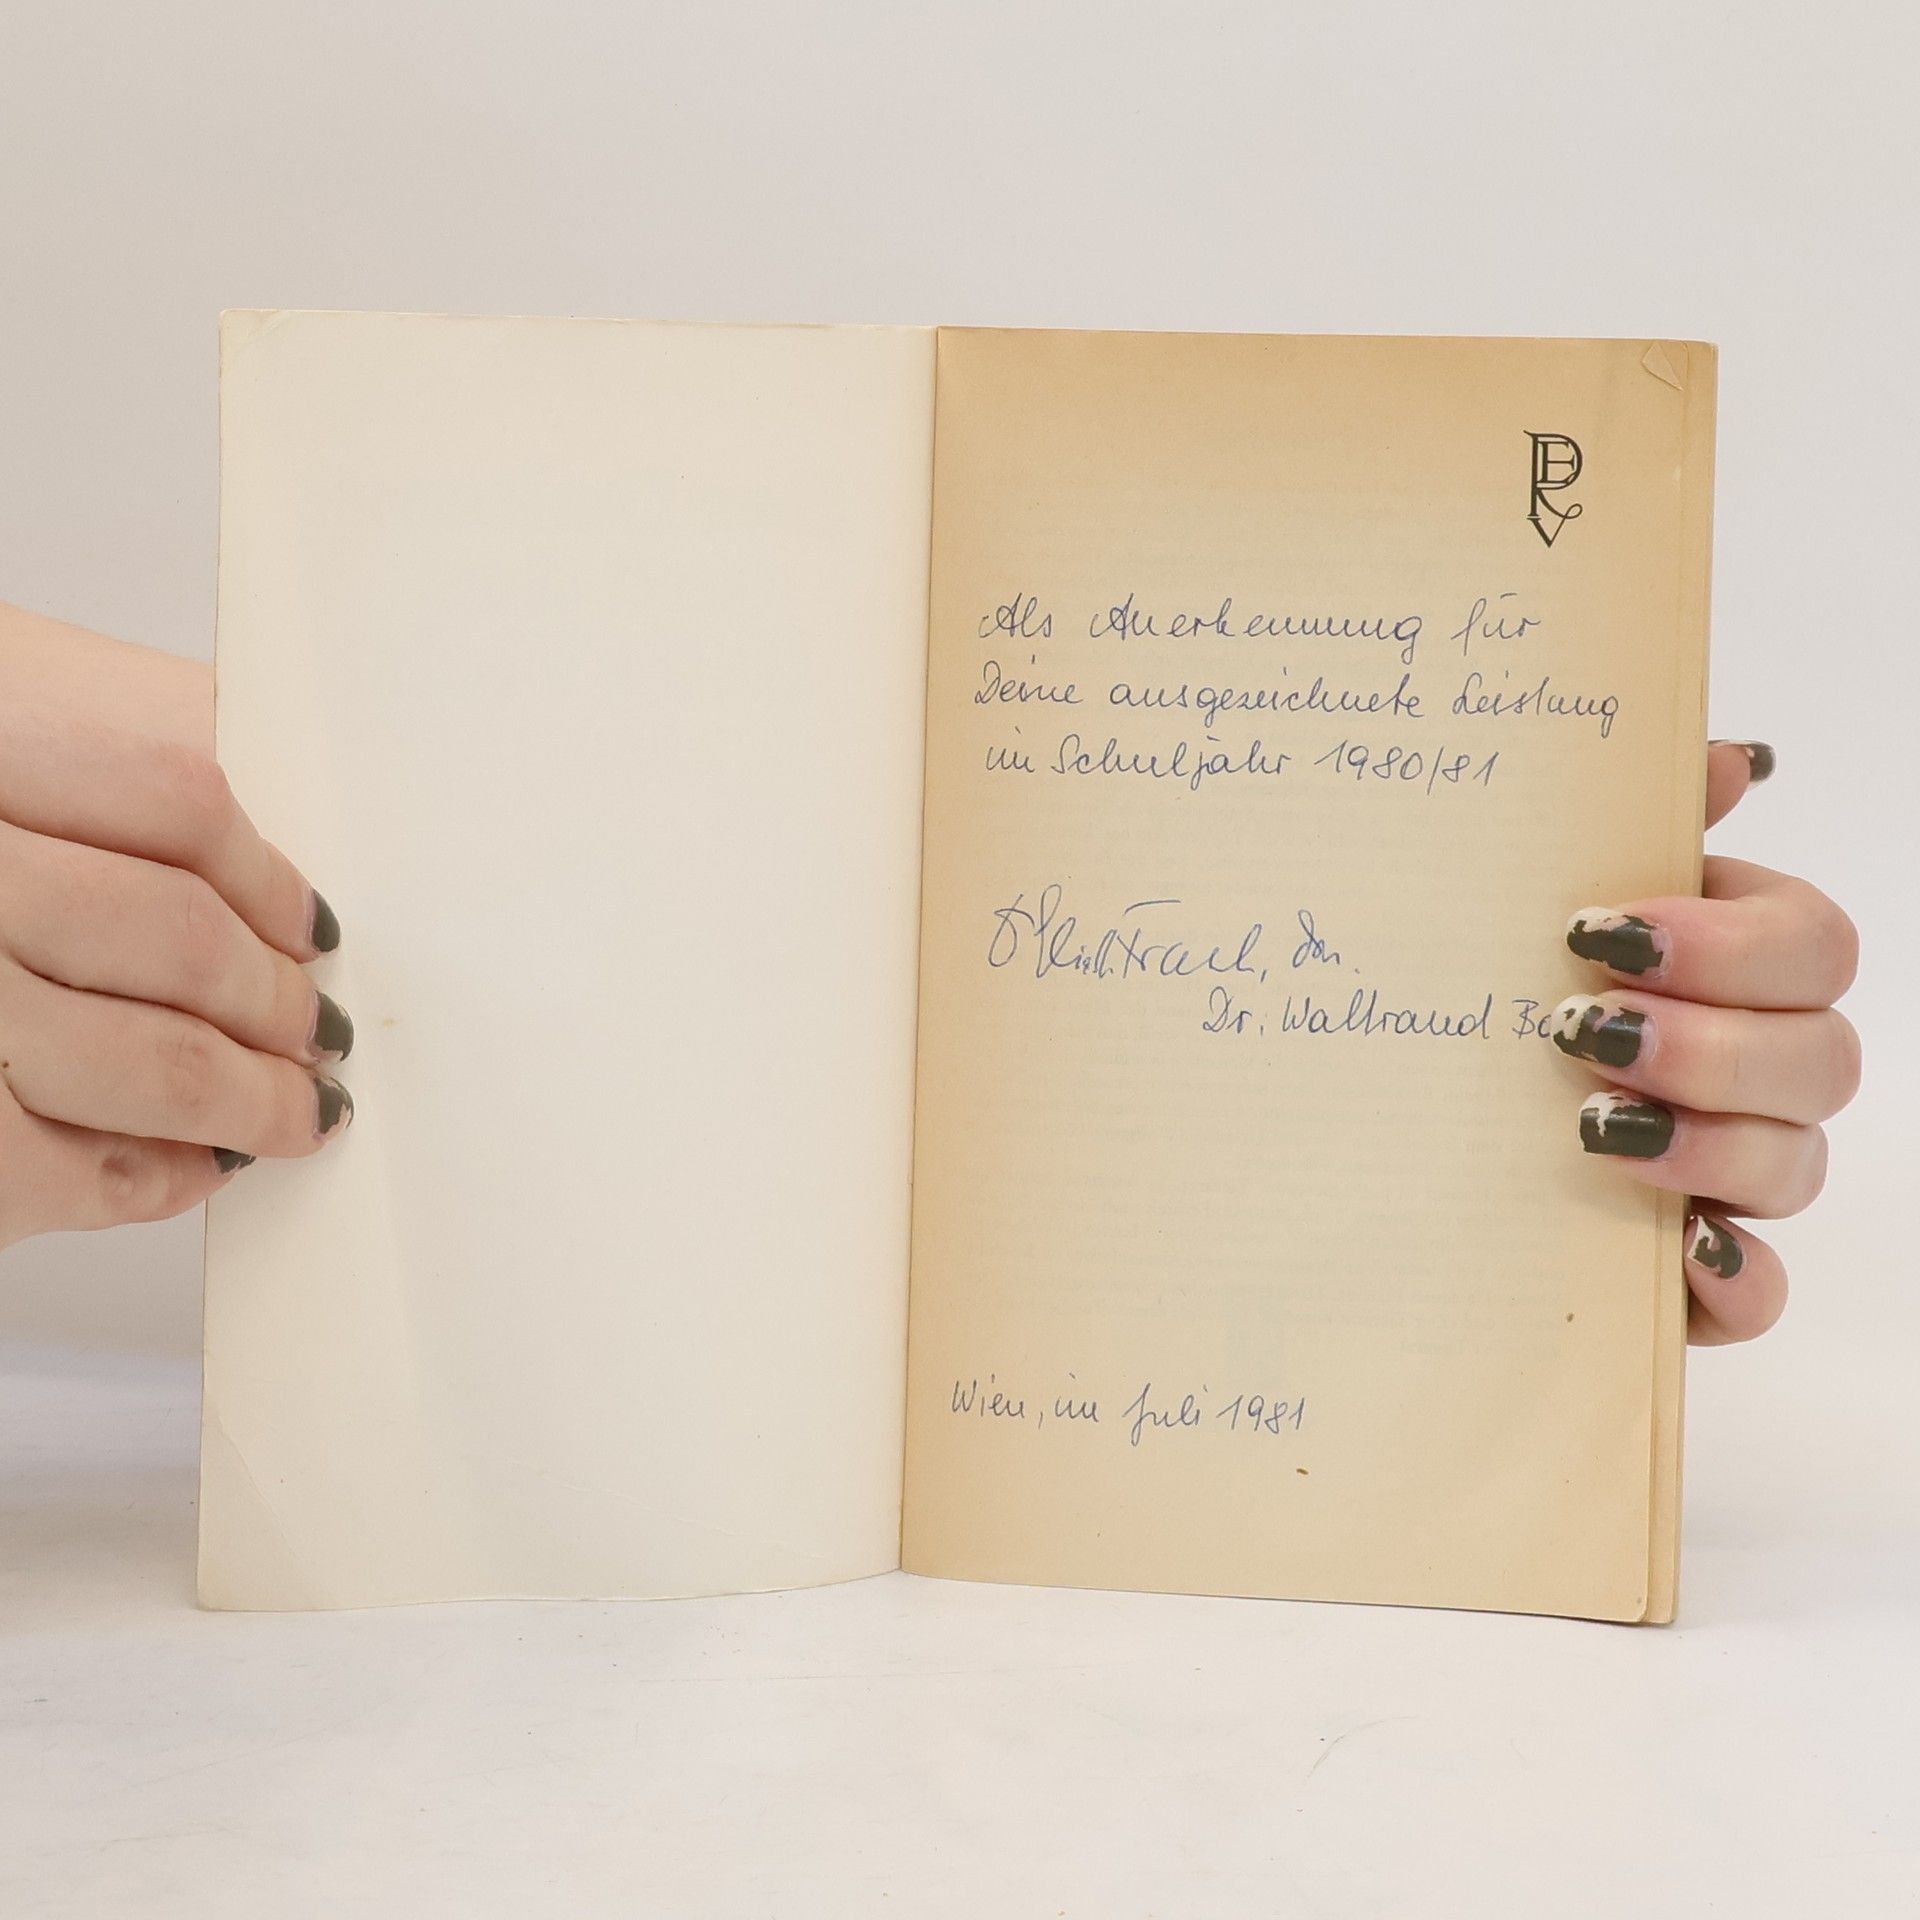 Als Anerkennung für
Deine ausgezeichnete Leistung
im Schuljahr 1980/81
Dr. Waltraud
Wien, im Juli 1981